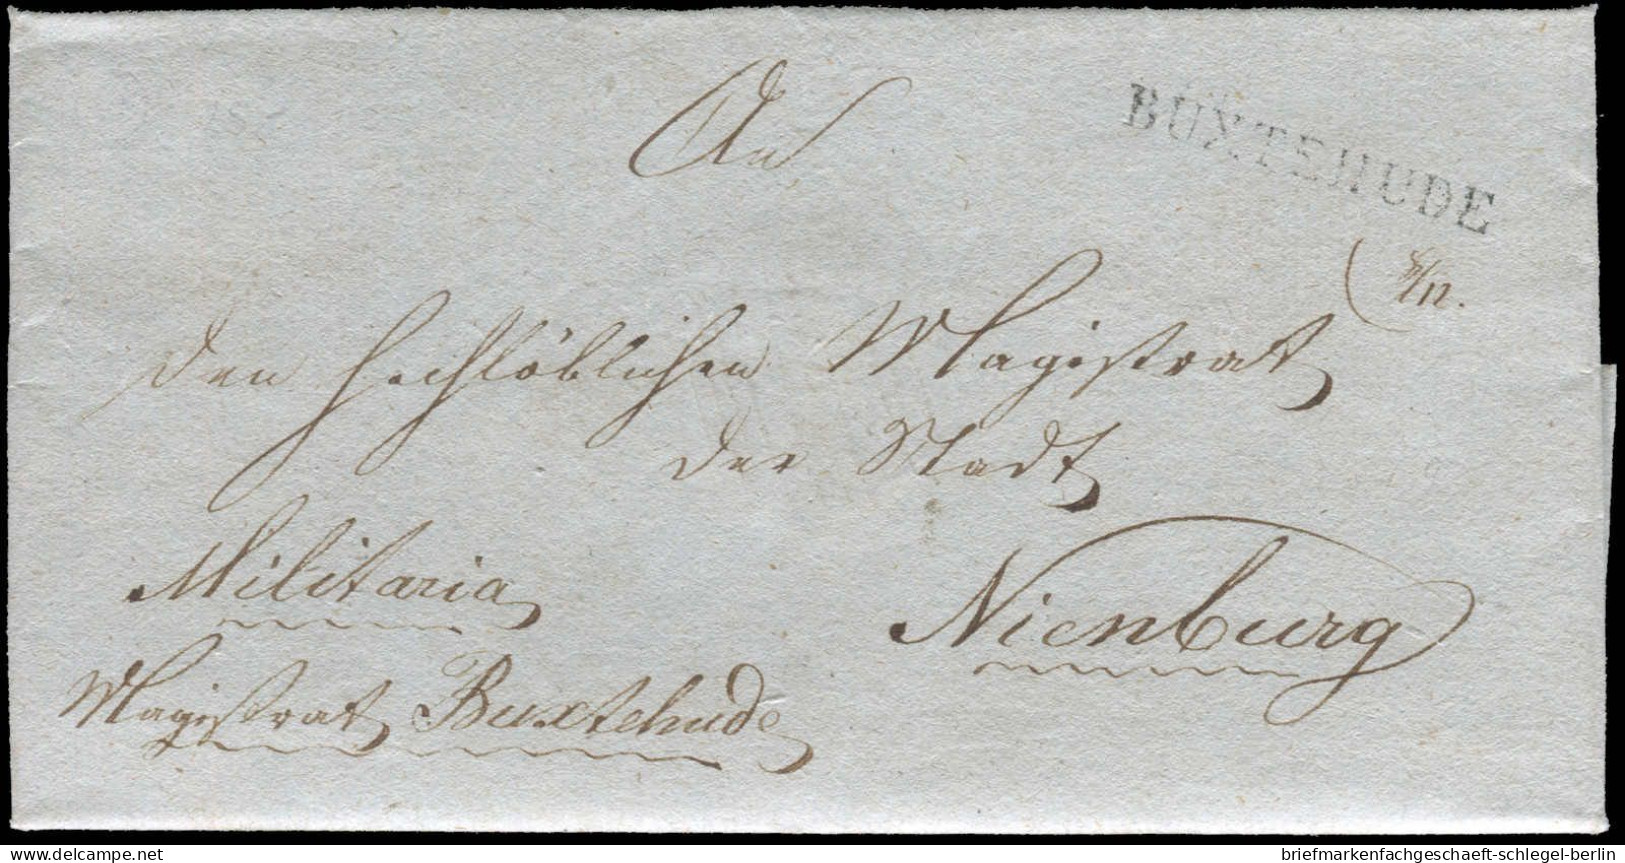 An
BUXTEHUDE
8/12.
den Hochlöblichen Magistrat
der Stadt
Militaria
Nienburg
Magistrat Buxtehude
briefmarkenfachgeschaeft-schlegel-berlin